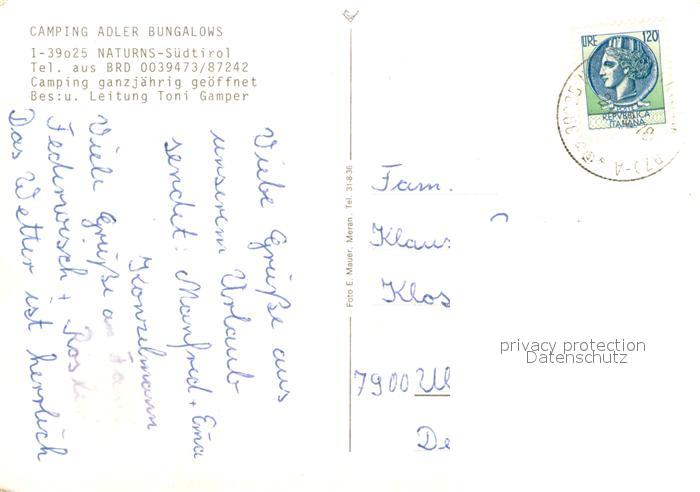 CAMPING ADLER BUNGALOWS
I-39o25 NATURNS-Südtirol
Tel. aus BRD 0039473/87242
Camping ganzjährig geöffnet
Bes:u. Leitung Toni Gamper
Viebe Grüße aus
unserem Urlaub
sendet: Manfred + Erna
Konzelmann
Viele Grüße an Fam
Federwisch +
Das Wetter ist herrlich
Foto E. Mauer, Meran, Tel. 31-8-36
LIRE 120
POSTE
REPVBBLICA
ITALIANA
Fam.
Klaus
Klos
7900 Ul
De
privacy protection
Datenschutz